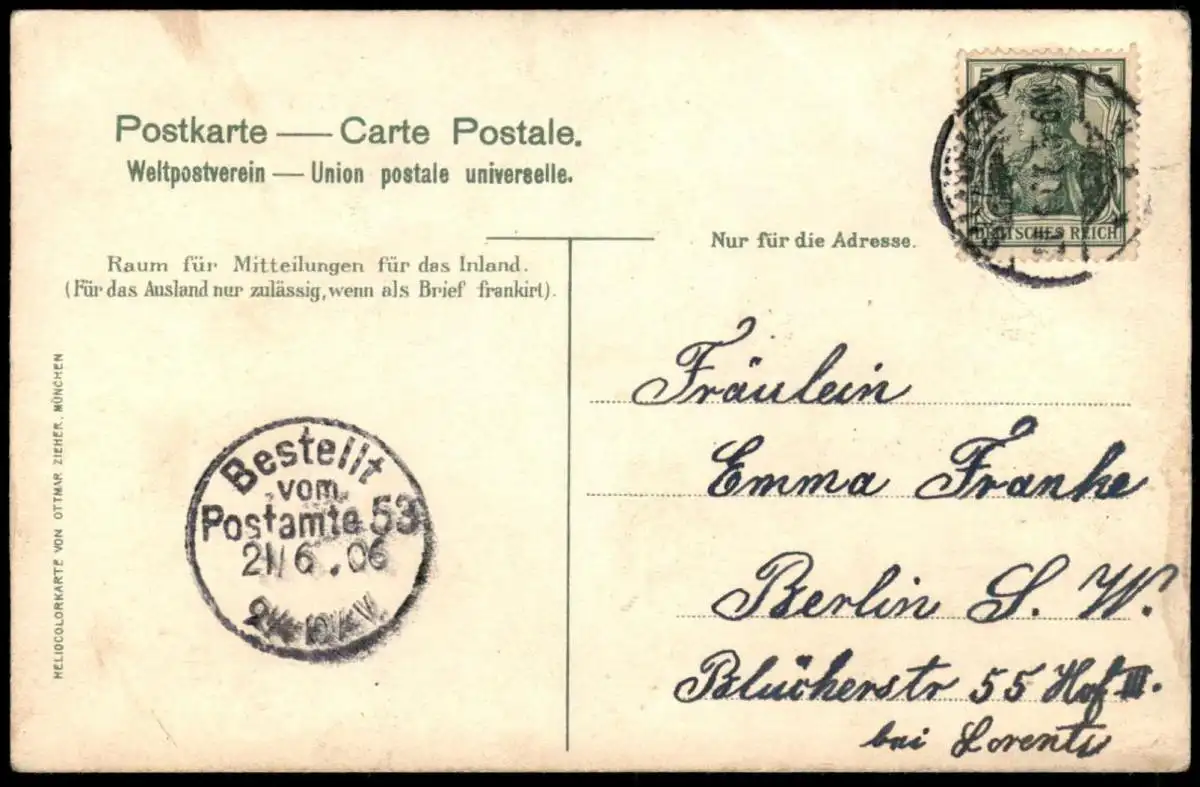 Postkarte — Carte Postale.
Weltpostverein — Union postale universelle.
Nur für die Adresse.
Raum für Mitteilungen für das Inland.
(Für das Ausland nur zulässig, wenn als Brief frankirt).
HELIOCOLORKARTE VON OTTMAR ZIEHER, MÜNCHEN
5 5
DEUTSCHES REICH
Fräulein
Emma Franke
Berlin S. W.
Blücherstr 55 Hof III.
bei Lorentz
Bestellt
vom
Postamte 53
21/6.06